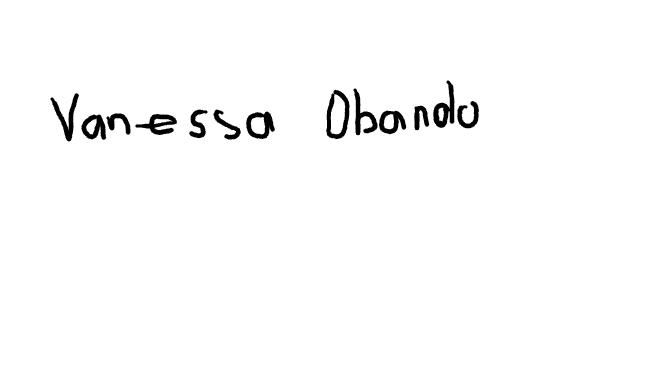 Vanessa Obando